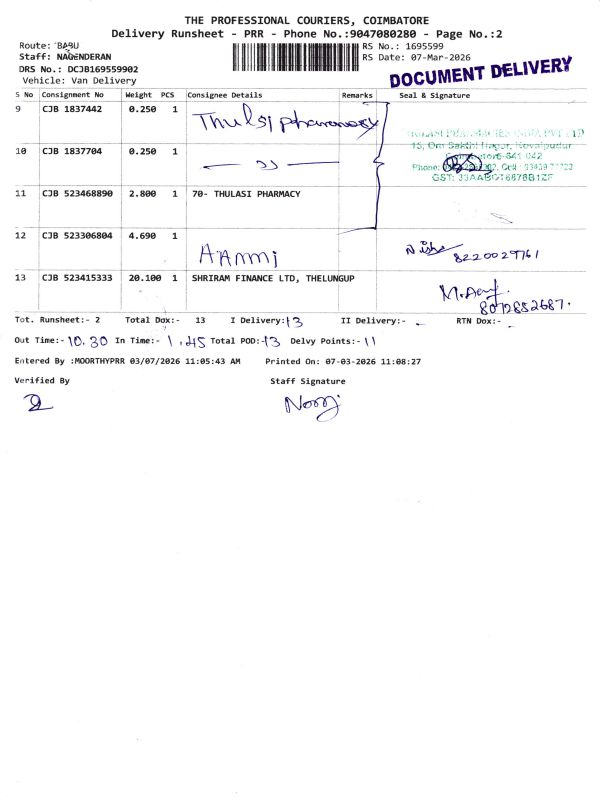 THE PROFESSIONAL COURIERS, COIMBATORE
Delivery Runsheet - PRR - Phone No.:9047080280 - Page No.:2
Route: BABU
RS No.: 1695599
Staff: NAGENDERAN
RS Date: 07-Mar-2026
DRS No.: DCJB169559902
Vehicle: Van Delivery
DOCUMENT DELIVERY
S No Consignment No Weight PCS Consignee Details Remarks Seal & Signature
9 CJB 1837442 0.250 1 Thulsi pharmacy
10 CJB 1837704 0.250 1 — 〃 —
15, Om Sakthi Nagar, Kovaipudur
641 042
Phone:
GST:
11 CJB 523468890 2.800 1 70- THULASI PHARMACY
12 CJB 523306804 4.690 1 8220029761
13 CJB 523415333 20.100 1 SHRIRAM FINANCE LTD, THELUNGUP
8072852687.
Tot. Runsheet:- 2 Total Dox:- 13 I Delivery:- 13 II Delivery:- - RTN Dox:- -
Out Time:- 10.30 In Time:- 1.45 Total POD:- 13 Delvy Points:- 11
Entered By :MOORTHYPRR 03/07/2026 11:05:43 AM Printed On: 07-03-2026 11:08:27
Verified By Staff Signature